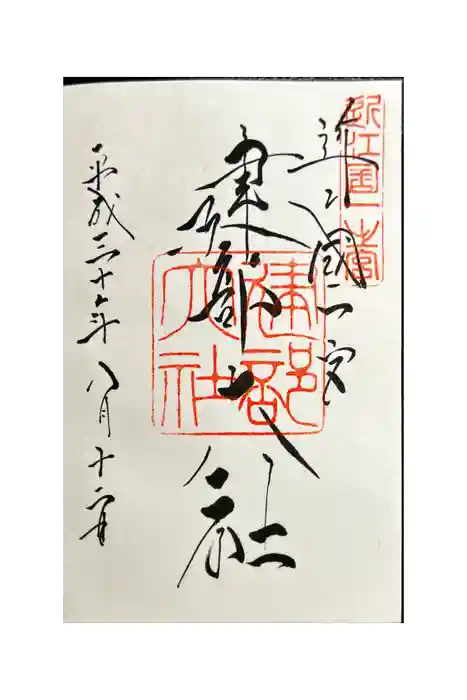 近江國一宮
近江國一宮
建部大社
建部大社
平成三十年八月十二日